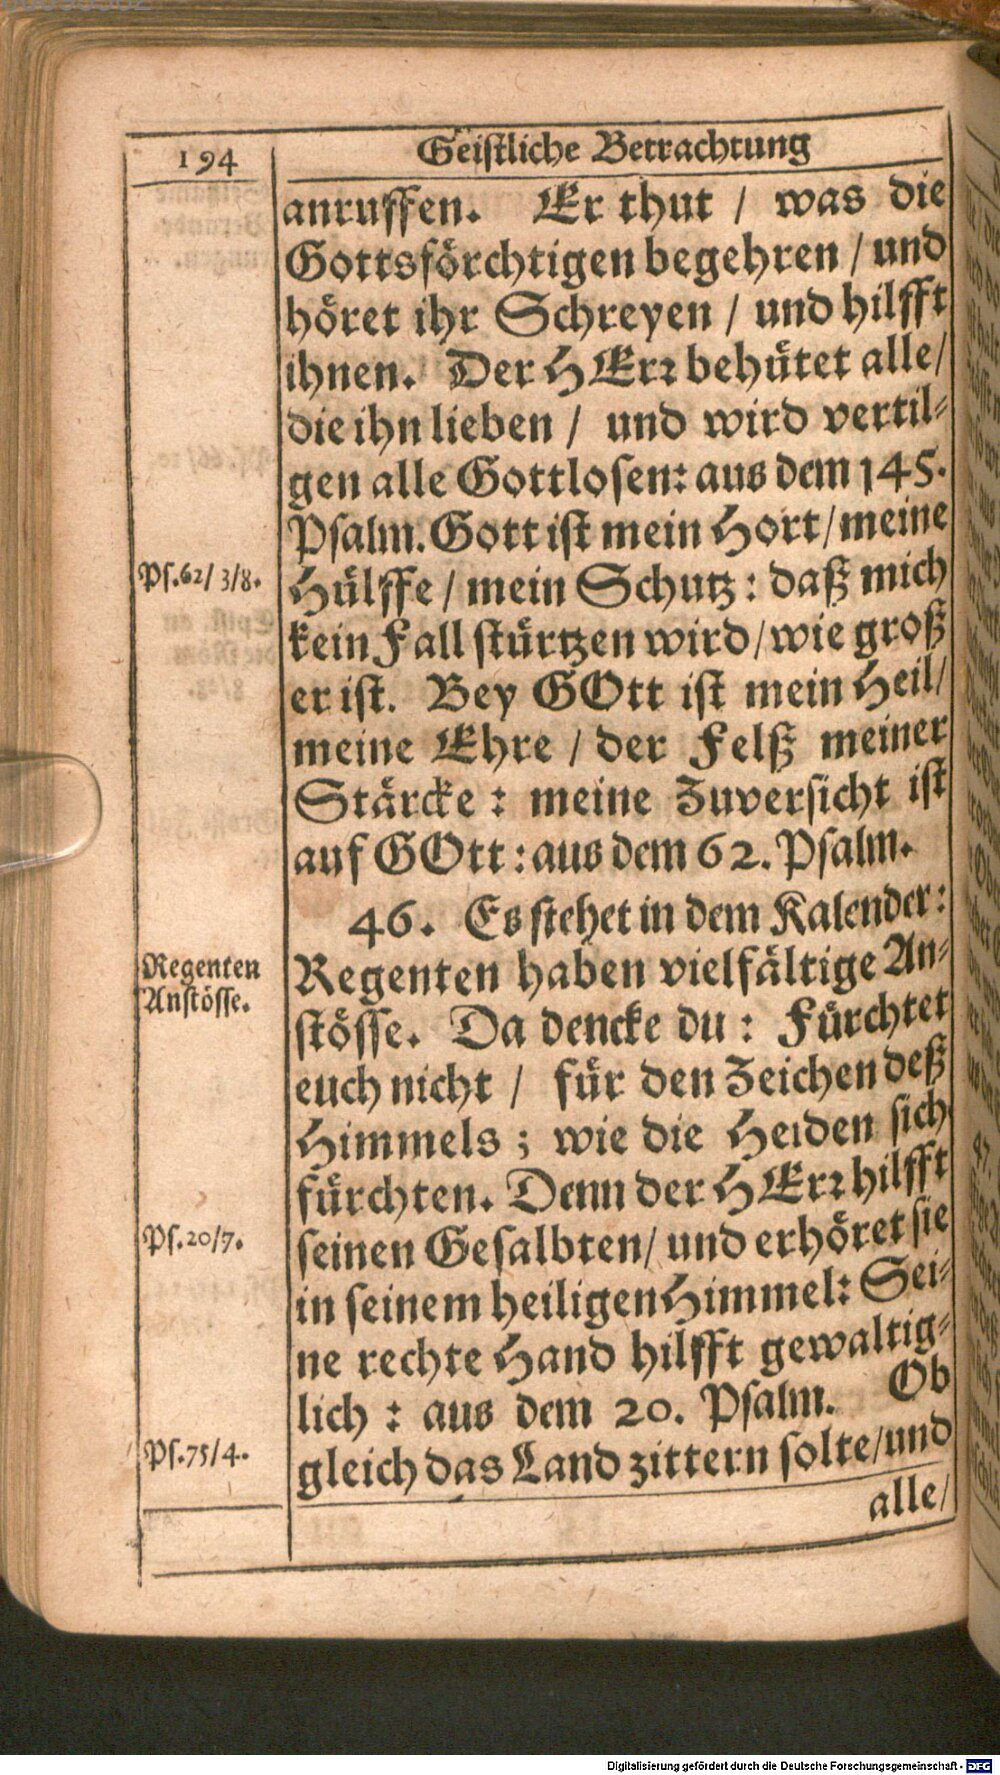 194
Geistliche Betrachtung
anruffen. Er thut / was die
Gottsförchtigen begehren / und
höret ihr Schreyen / und hilfft
ihnen. Der HErr behütet alle /
die ihn lieben / und wird vertil-
gen alle Gottlosen: aus dem 145.
Psalm. Gott ist mein Hort / meine
Ps. 62 / 3 / 8.
Hülffe / mein Schutz: daß mich
kein Fall stürtzen wird / wie groß
er ist. Bey GOtt ist mein Heil /
meine Ehre / der Felß meiner
Stärcke: meine Zuversicht ist
auf GOtt: aus dem 62. Psalm.
46. Es stehet in dem Kalender:
Regenten
Anstösse.
Regenten haben vielfältige An-
stösse. Da dencke du: Fürchtet
euch nicht / für den Zeichen deß
Himmels; wie die Heiden sich
fürchten. Denn der HErr hilfft
Ps. 20 / 7.
seinen Gesalbten / und erhöret sie
in seinem heiligen Himmel: Sei-
ne rechte Hand hilfft gewaltig-
lich: aus dem 20. Psalm. Ob
Ps. 75 / 4.
gleich das Land zittern solte / und
alle /
Digitalisierung gefördert durch die Deutsche Forschungsgemeinschaft - DFG